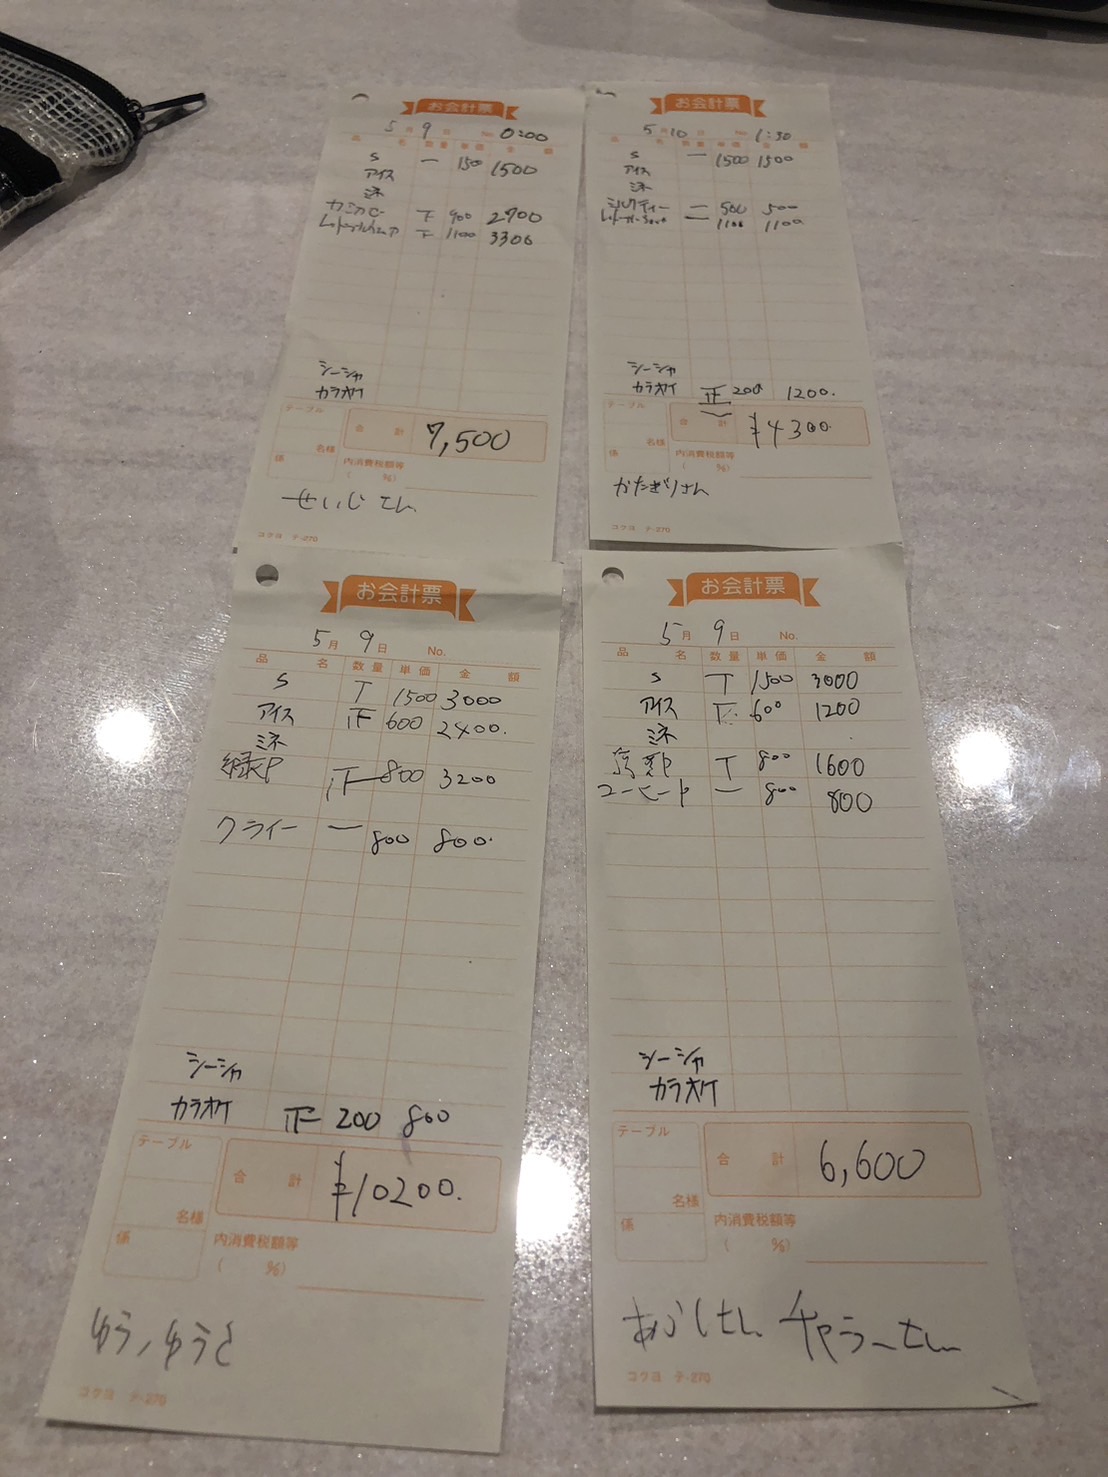 お会計票
5月 9日 No. 0:00
品 名 数量 単価 金 額
S 一 1500 1500
アイス
ミネ
カミカゼ 下 900 2700
下 1100 3300
シーシャ
カラオケ
テーブル
合 計 7,500
名様
係 内消費税額等
( %)
せいじさん
コクヨ テ-270
お会計票
5月 10日 No. 1:30
品 名 数量 単価 金 額
S 一 1500 1500
アイス
ミネ
ミルクティー 一 500 500
一 1100 1100
シーシャ
カラオケ 正一 200 1200.
テーブル
合 計 ¥4300.
名様
係 内消費税額等
( %)
かたぎりさん
コクヨ テ-270
お会計票
5月 9日 No.
品 名 数量 単価 金 額
S T 1500 3000
アイス 正 600 2400.
ミネ
緑P 正 800 3200
クライナー 一 800 800.
シーシャ
カラオケ 正 200 800
テーブル
合 計 ¥10200.
名様
係 内消費税額等
( %)
ゆう、ゆうと
コクヨ テ-270
お会計票
5月 9日 No.
品 名 数量 単価 金 額
S T 1500 3000
アイス 600 1200
ミネ
T 800 1600
コーヒーP 一 800 800
シーシャ
カラオケ
テーブル
合 計 6,600
名様
係 内消費税額等
( %)
あらしさん チャラーさん
コクヨ テ-270